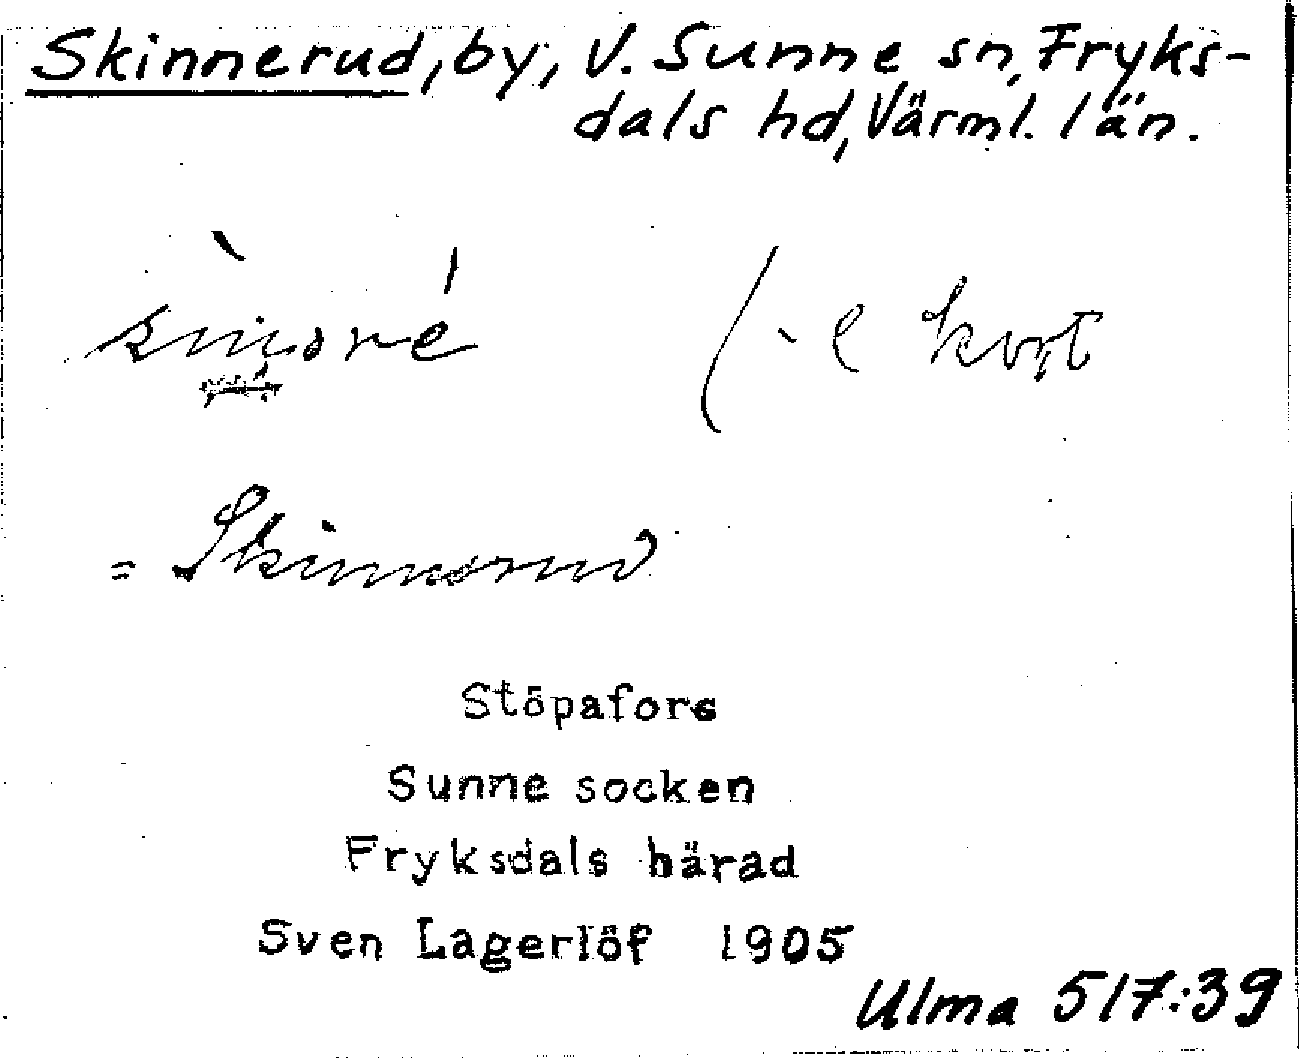 Skinnerud, by, V. Sunne sn, Fryks-
dals hd, Värml. län.
(-e kort
= Skinnerud
Stöpafors
Sunne socken
Fryksdals härad
Sven Lagerlöf 1905
Ulma 517:39